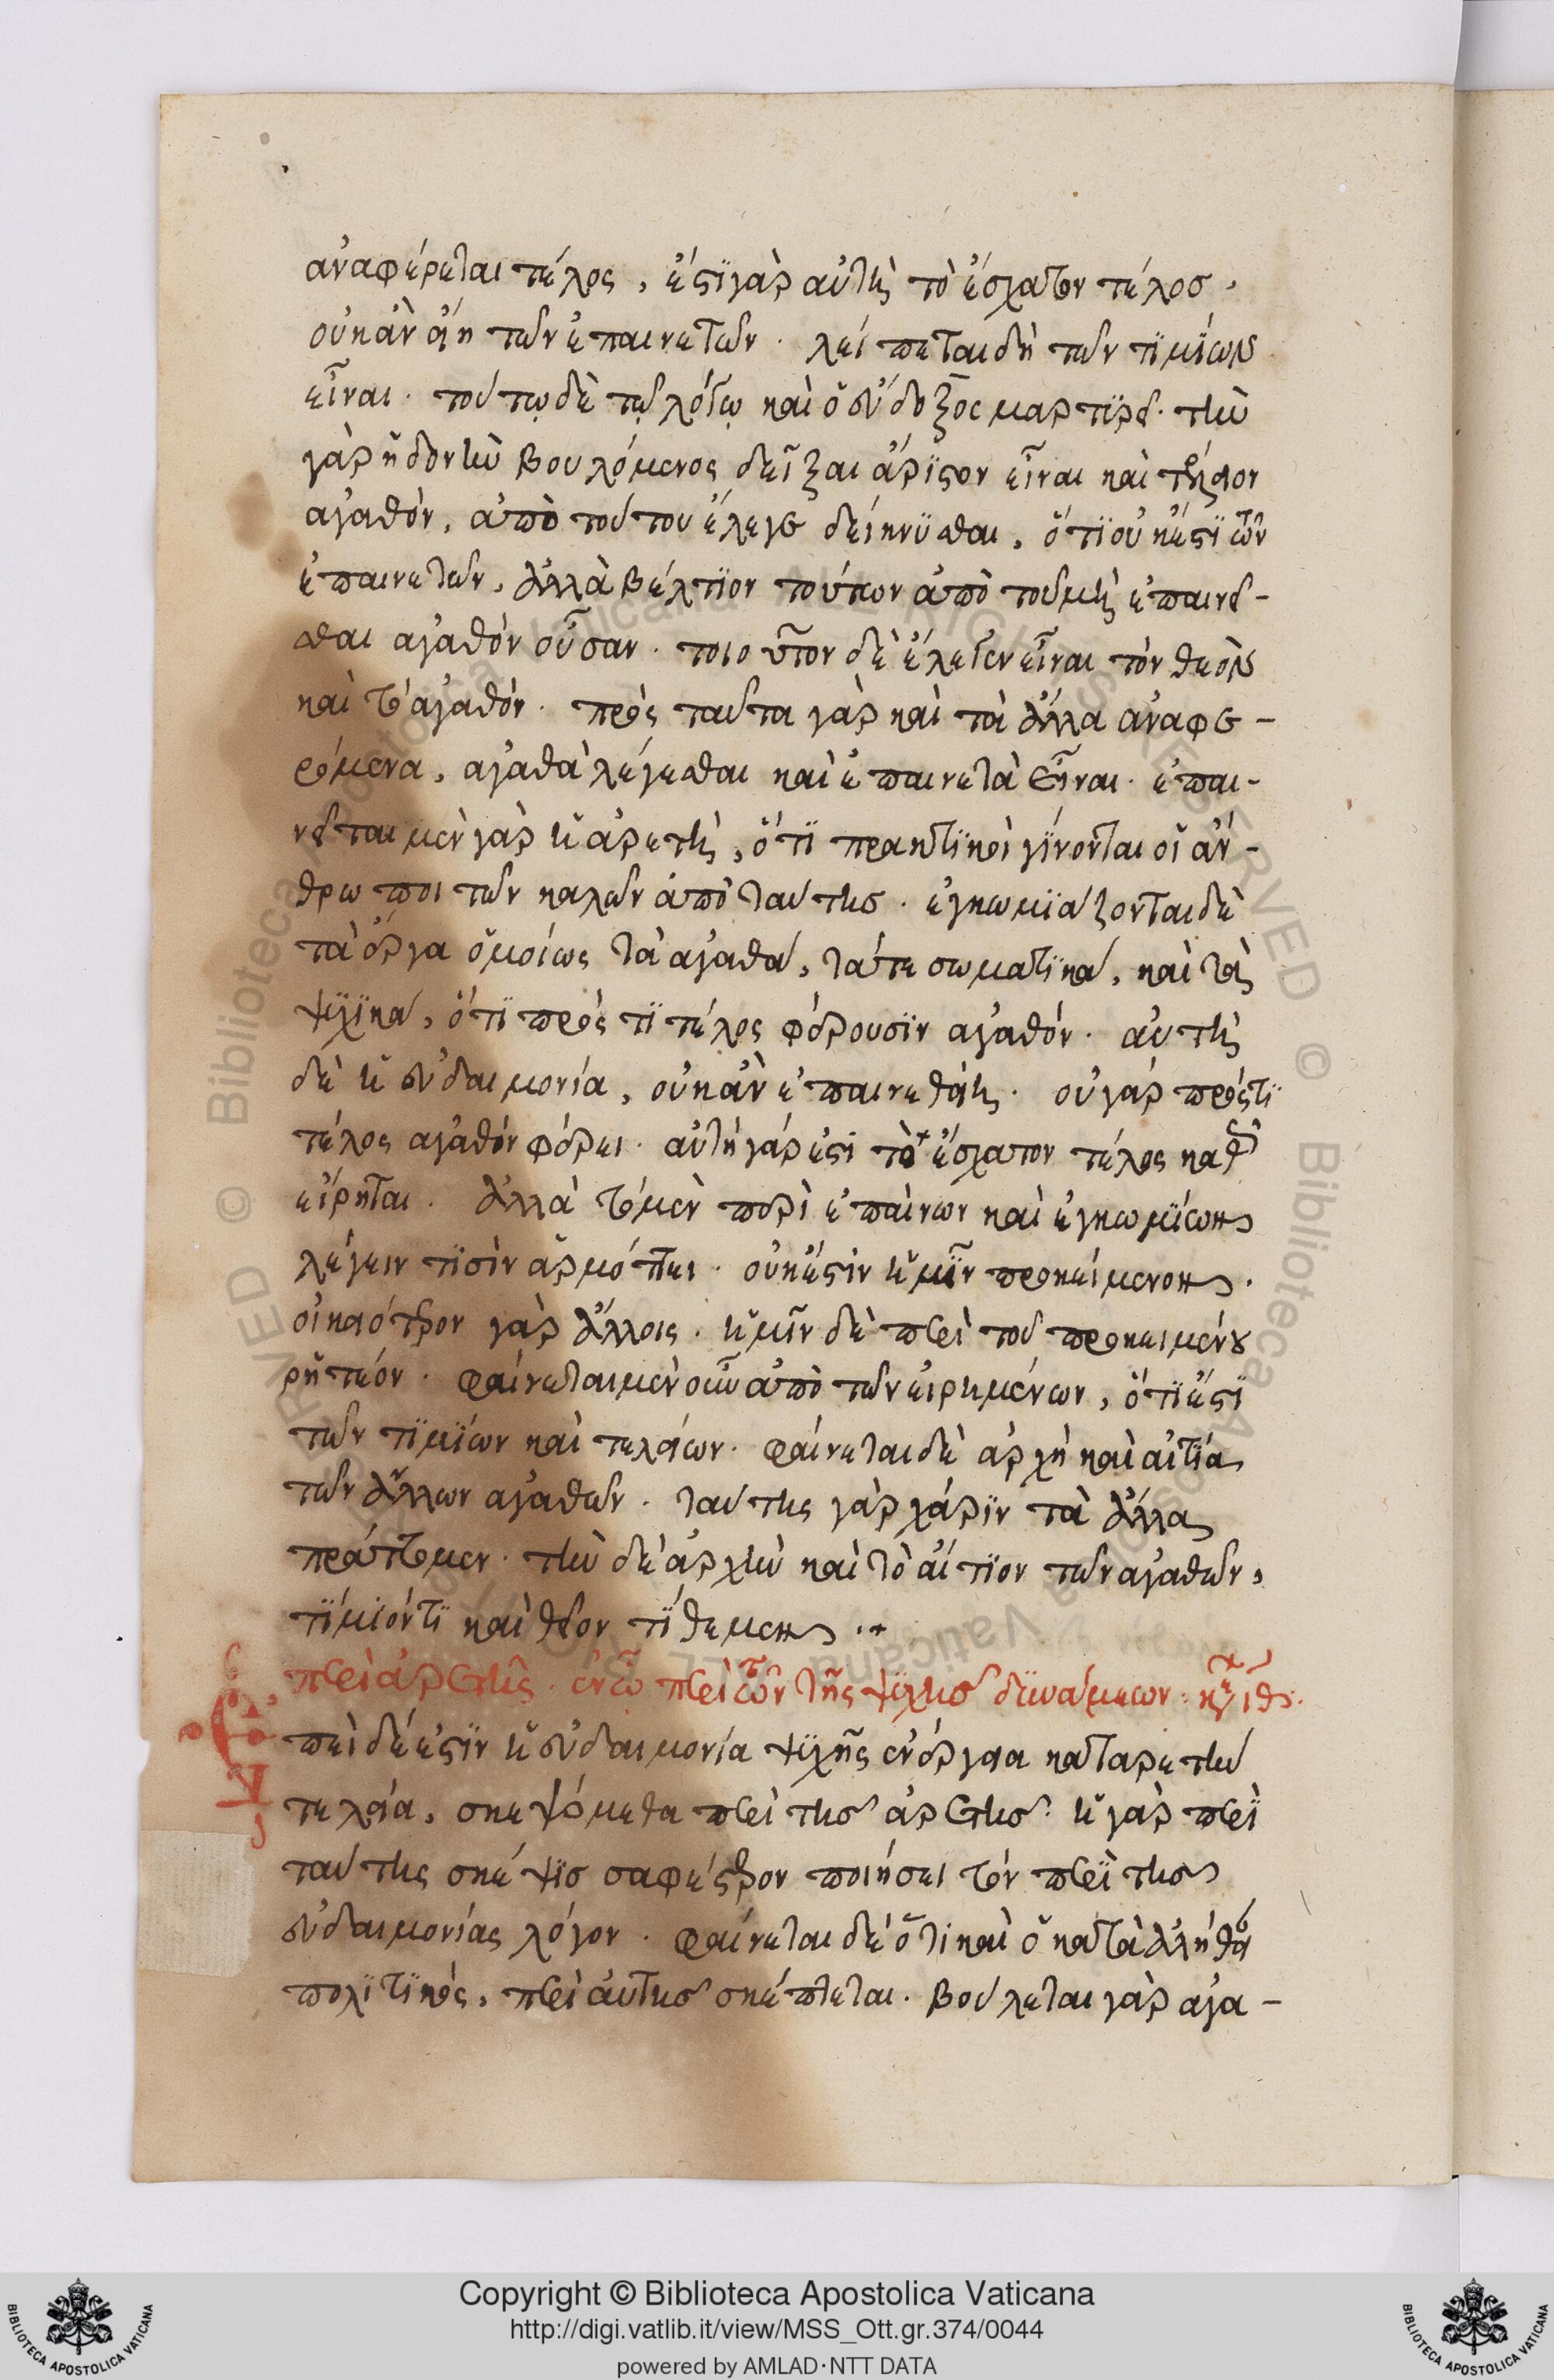 ἀναφέρεται τέλος, ἔστι γὰρ αὐτὴ τὸ ἔσχατον τέλος,
οὐκ ἂν εἴη τῶν ἐπαινετῶν. λείπεται δὴ τῶν τιμίων
εἶναι. τούτῳ δὲ τῷ λόγῳ καὶ ὁ εὔδοξος μαρτυρεῖ. τὴν
γὰρ ἡδονὴν βουλόμενος δεῖξαι ἄριστον εἶναι καὶ τέλειον
ἀγαθόν, ἀπὸ τούτου ἔλεγε δείκνυσθαι, ὅτι οὐκ ἔστι τῶν
ἐπαινετῶν, ἀλλὰ βέλτιον τούτων ἀπὸ τοῦ μὴ ἐπαινεῖ-
σθαι ἀγαθὸν οὖσαν. τοιοῦτον δὲ ἔλεγεν εἶναι τὸν θεὸν
καὶ τὸ ἀγαθόν. πρὸς ταῦτα γὰρ καὶ τὰ ἄλλα ἀναφε-
ρόμενα, ἀγαθὰ λέγεσθαι καὶ ἐπαινετὰ εἶναι. ἐπαι-
νεῖται μὲν γὰρ ἡ ἀρετὴ, ὅτι πρακτικοὶ γίνονται οἱ ἄν-
θρωποι τῶν καλῶν ἀπὸ ταύτης. ἐγκωμιάζονται δὲ
τὰ ἔργα ὁμοίως τὰ ἀγαθὰ, τά τε σωματικὰ, καὶ τὰ
ψυχικὰ, ὅτι πρός τι τέλος φέρουσιν ἀγαθόν. αὐτὴ
δὲ ἡ εὐδαιμονία, οὐκ ἂν ἐπαινεθείη. οὐ γὰρ πρός τι
τέλος ἀγαθὸν φέρει. αὐτὴ γάρ ἐστι τὸ ἔσχατον τέλος καθὼς
εἴρηται. ἀλλὰ τὸ μὲν περὶ ἐπαίνων καὶ ἐγκωμίων
λέγειν τισὶν ἁρμόττει. οὐκ ἔστιν ἡμῖν προκείμενον.
οἰκειότερον γὰρ ἄλλοις. ἡμῖν δὲ περὶ τοῦ προκειμένου
ῥητέον. φαίνεται μὲν οὖν ἀπὸ τῶν εἰρημένων, ὅτι ἔστι
τῶν τιμίων καὶ τελείων. φαίνεται δὲ ἀρχὴ καὶ αἰτία
τῶν ἄλλων ἀγαθῶν. ταύτης γὰρ χάριν τὰ ἄλλα
πράττομεν. τὴν δὲ ἀρχὴν καὶ τὸ αἴτιον τῶν ἀγαθῶν,
τίμιόν τι καὶ θεῖον τίθεμεν.
περὶ ἀρετῆς. ἐν ᾧ περὶ τῶν τῆς ψυχῆς δυνάμεων.
Ἐπειδή ἐστιν ἡ εὐδαιμονία ψυχῆς ἐνέργεια κατ' ἀρετὴν
τελεία, σκεψόμεθα περὶ τῆς ἀρετῆς. ἡ γὰρ περὶ
ταύτης σκέψις σαφέστερον ποιήσει τὸν περὶ τῆς
εὐδαιμονίας λόγον. φαίνεται δὲ ὅτι καὶ ὁ κατὰ ἀλήθειαν
πολιτικὸς, περὶ αὐτῆς σκέπτεται. βούλεται γὰρ ἀγα-
Copyright © Biblioteca Apostolica Vaticana
http://digi.vatlib.it/view/MSS_Ott.gr.374/0044
powered by AMLAD·NTT DATA